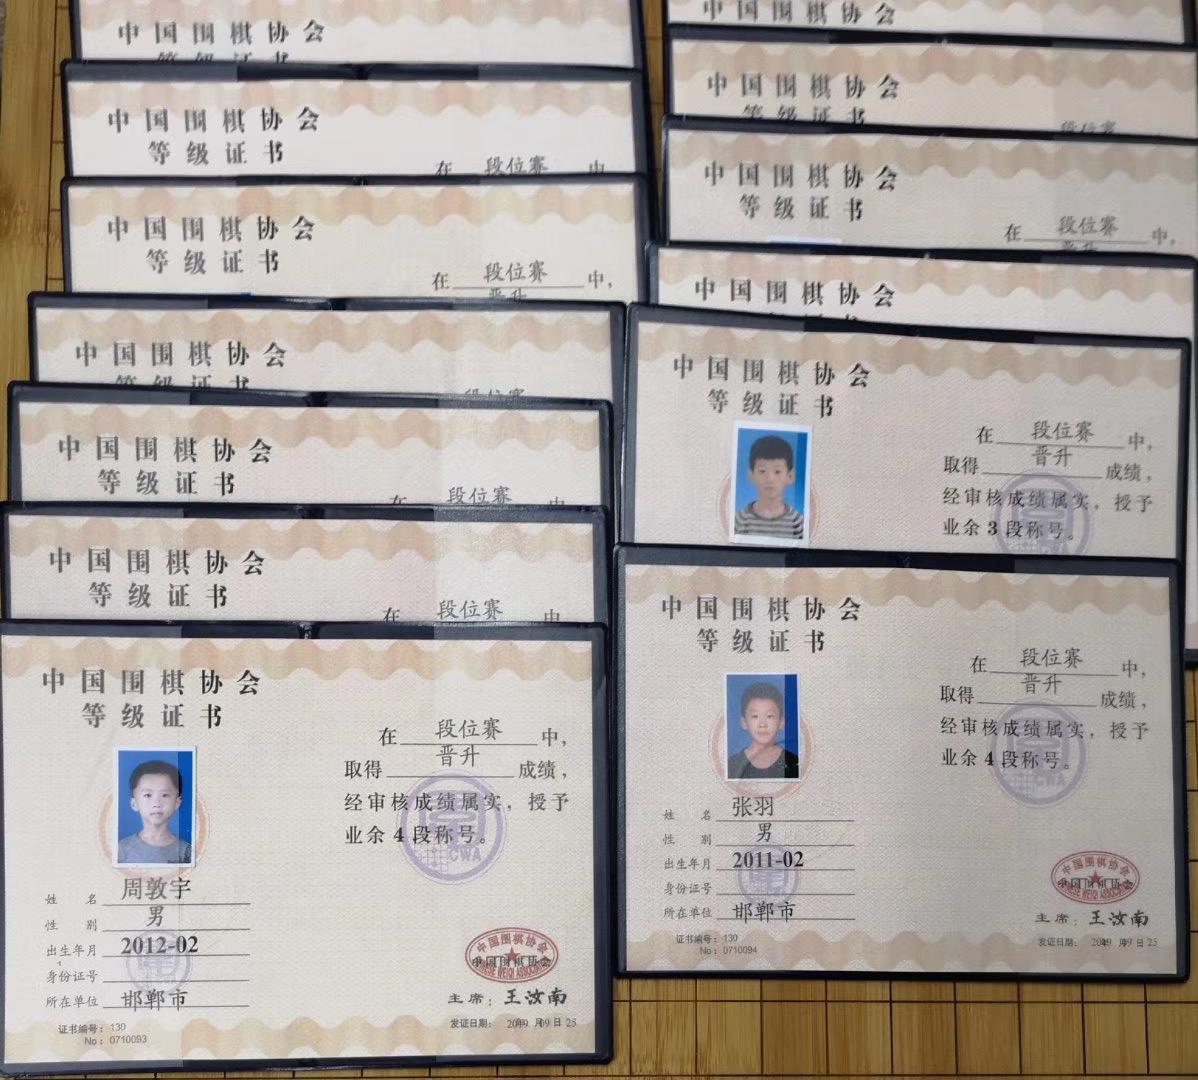 中国围棋协会
中国围棋协会
等级证书
在 段位赛 中
中国围棋协会
等级证书
在 段位赛 中，
晋升
中国围棋协会
等级证书
段位赛
中国围棋协会
等级证书
在 段位赛 中
中国围棋协会
等级证书
在 段位赛 中
中国围棋协会
等级证书
在 段位赛 中，
取得 晋升 成绩，
经审核成绩属实，授予
业余 4 段称号。
CWA
姓 名 周敦宇
性 别 男
出生年月 2012-02
身份证号
所在单位 邯郸市
证书编号：130
No：0710093
中国围棋协会
CHINESE WEIQI ASSOCIATION
中国围棋协会
主席：王汝南
发证日期： 月 日 25
中国围棋协会
中国围棋协会
等级证书
段位赛
中国围棋协会
等级证书
在 段位赛 中，
晋升
中国围棋协会
中国围棋协会
等级证书
在 段位赛 中，
取得 晋升 成绩，
经审核成绩属实，授予
业余 3 段称号。
CWA
中国围棋协会
等级证书
在 段位赛 中，
取得 晋升 成绩，
经审核成绩属实，授予
业余 4 段称号。
CWA
姓 名 张羽
性 别 男
出生年月 2011-02
身份证号
所在单位 邯郸市
证书编号：130
No：0710094
中国围棋协会
CHINESE WEIQI ASSOCIATION
中国围棋协会
主席：王汝南
发证日期： 月 日 25